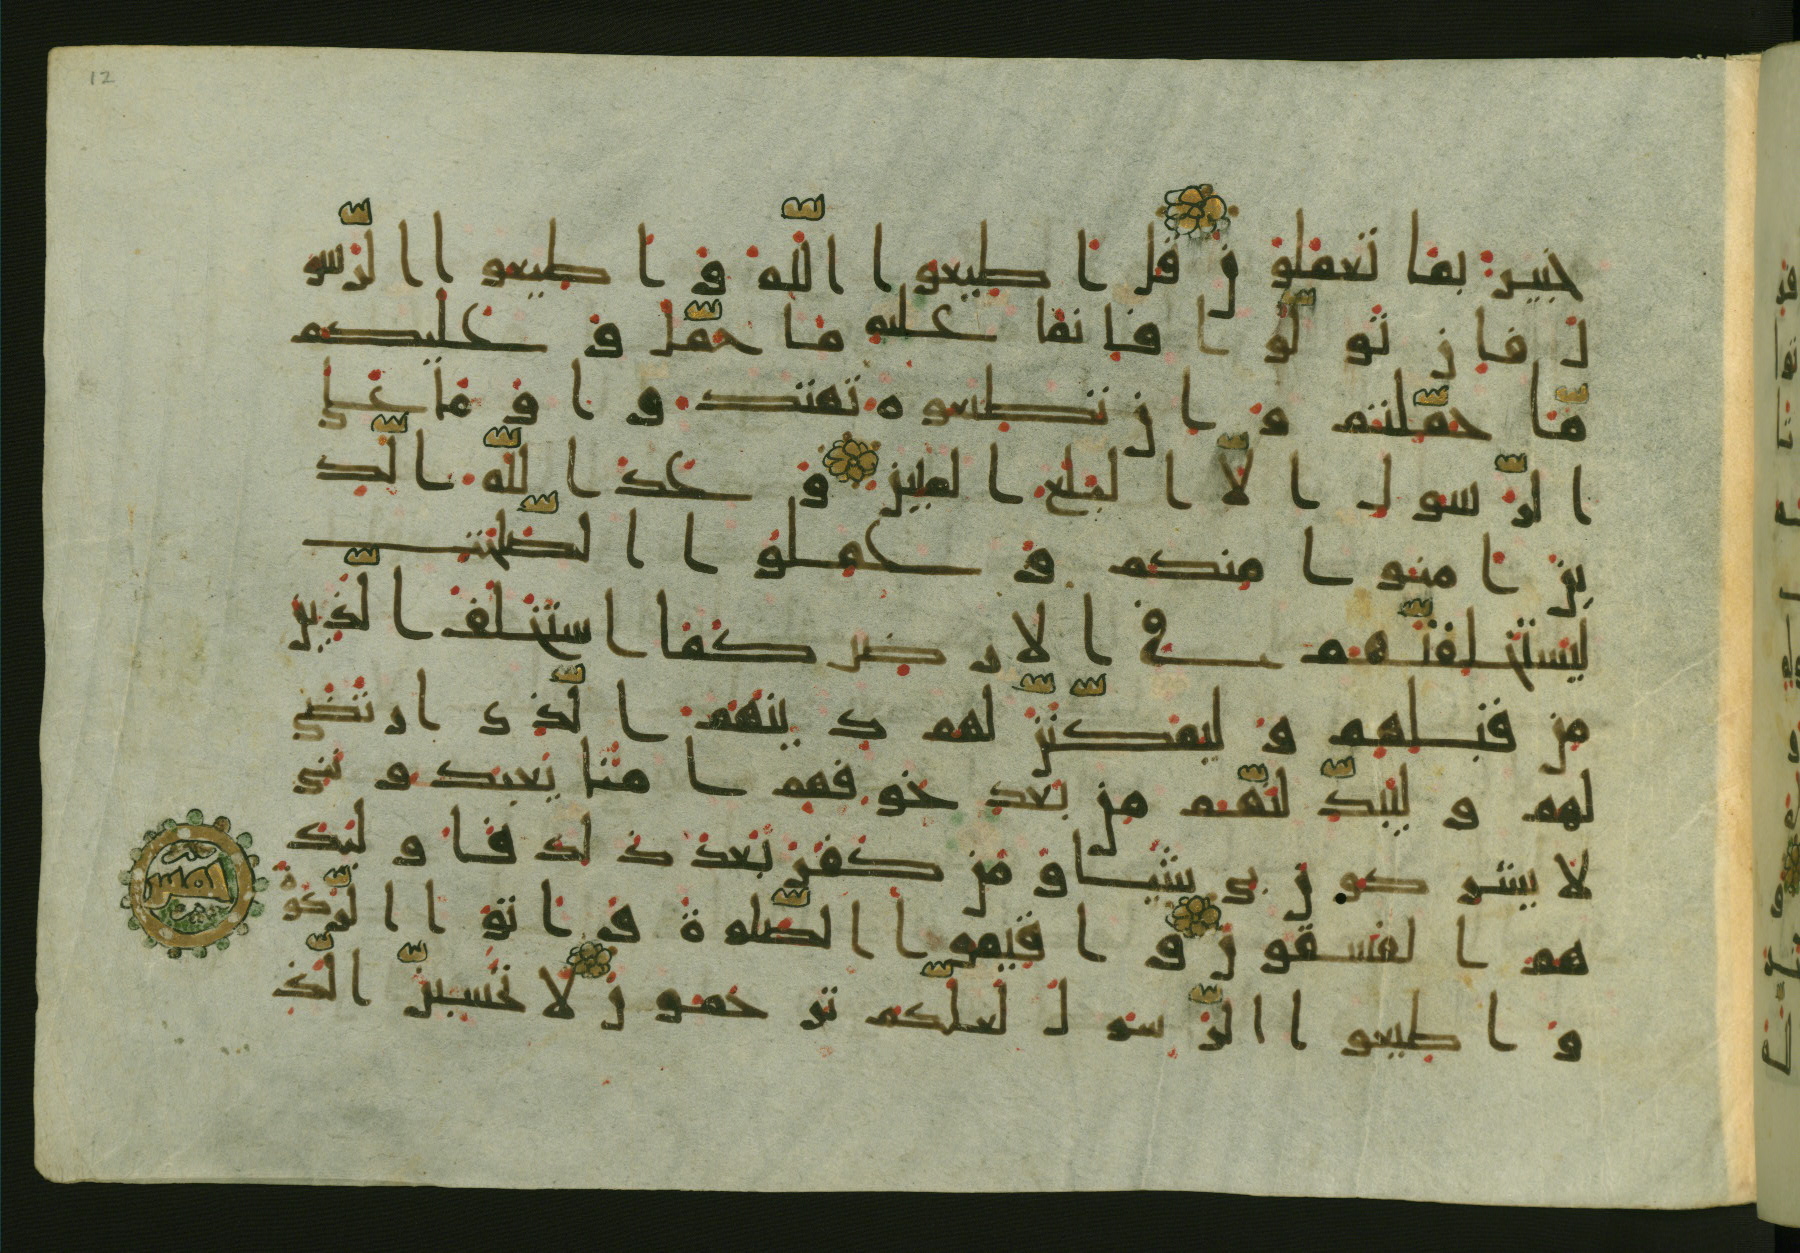 12
خبير بما تعملون قل ا طيعو ا ا لله و ا طيعو ا ا لر سو
ل فا ن تو لو ا فا نما عليه ما حمل و عليكم
ما حملتم و ا ن تطيعو ه تهتد و ا و ما على
ا لر سو ل ا لا ا لبلغ ا لمبين و عد ا لله ا لذ
ين ا منو ا منكم و عملو ا ا لصلحت
ليستخلفنهم في ا لا ر ض كما ا ستخلف ا لذين
من قبلهم و ليمكنن لهم د ينهم ا لذ ي ا ر تضى
لهم و ليبد لنهم من بعد خو فهم ا منا يعبد و نني
لا يشر كو ن بي شيا و من كفر بعد ذ لك فا و لئك
هم ا لفسقو ن و ا قيمو ا ا لصلو ة و ا تو ا ا لز كو ة
و ا طيعو ا ا لر سو ل لعلكم تر حمو ن لا تحسبن ا لذ